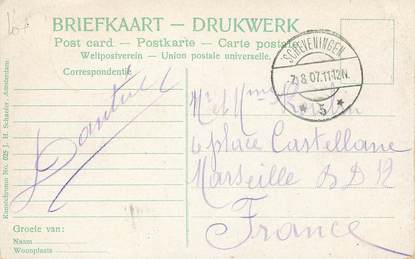 BRIEFKAART — DRUKWERK
Post card – Postkarte – Carte postale
Weltpostverein – Union postale universelle.
Correspondentie
SCHEVENINGEN
7.8.07.11-12N.
* 5 *
Kunstchromo No. 025 J. H. Schaefer, Amsterdam.
Mr et Mme
4 place Castellane
Marseille B D R
France
Groete van:
Naam
Woonplaats